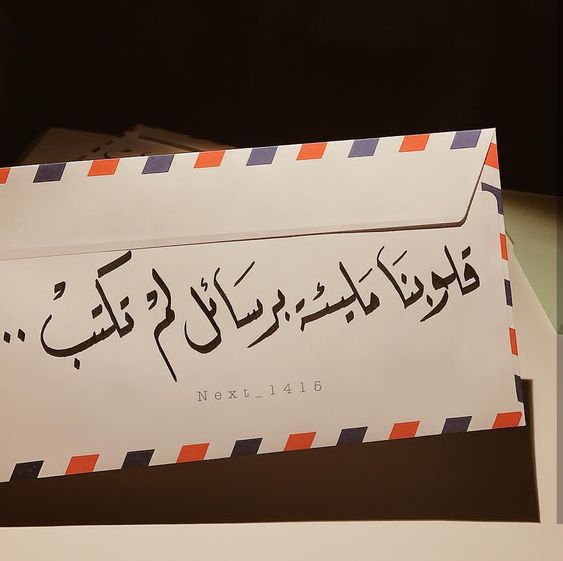 قلوبنَا مَليئة برسَائل لمْ تكتبْ ..
Next_1415